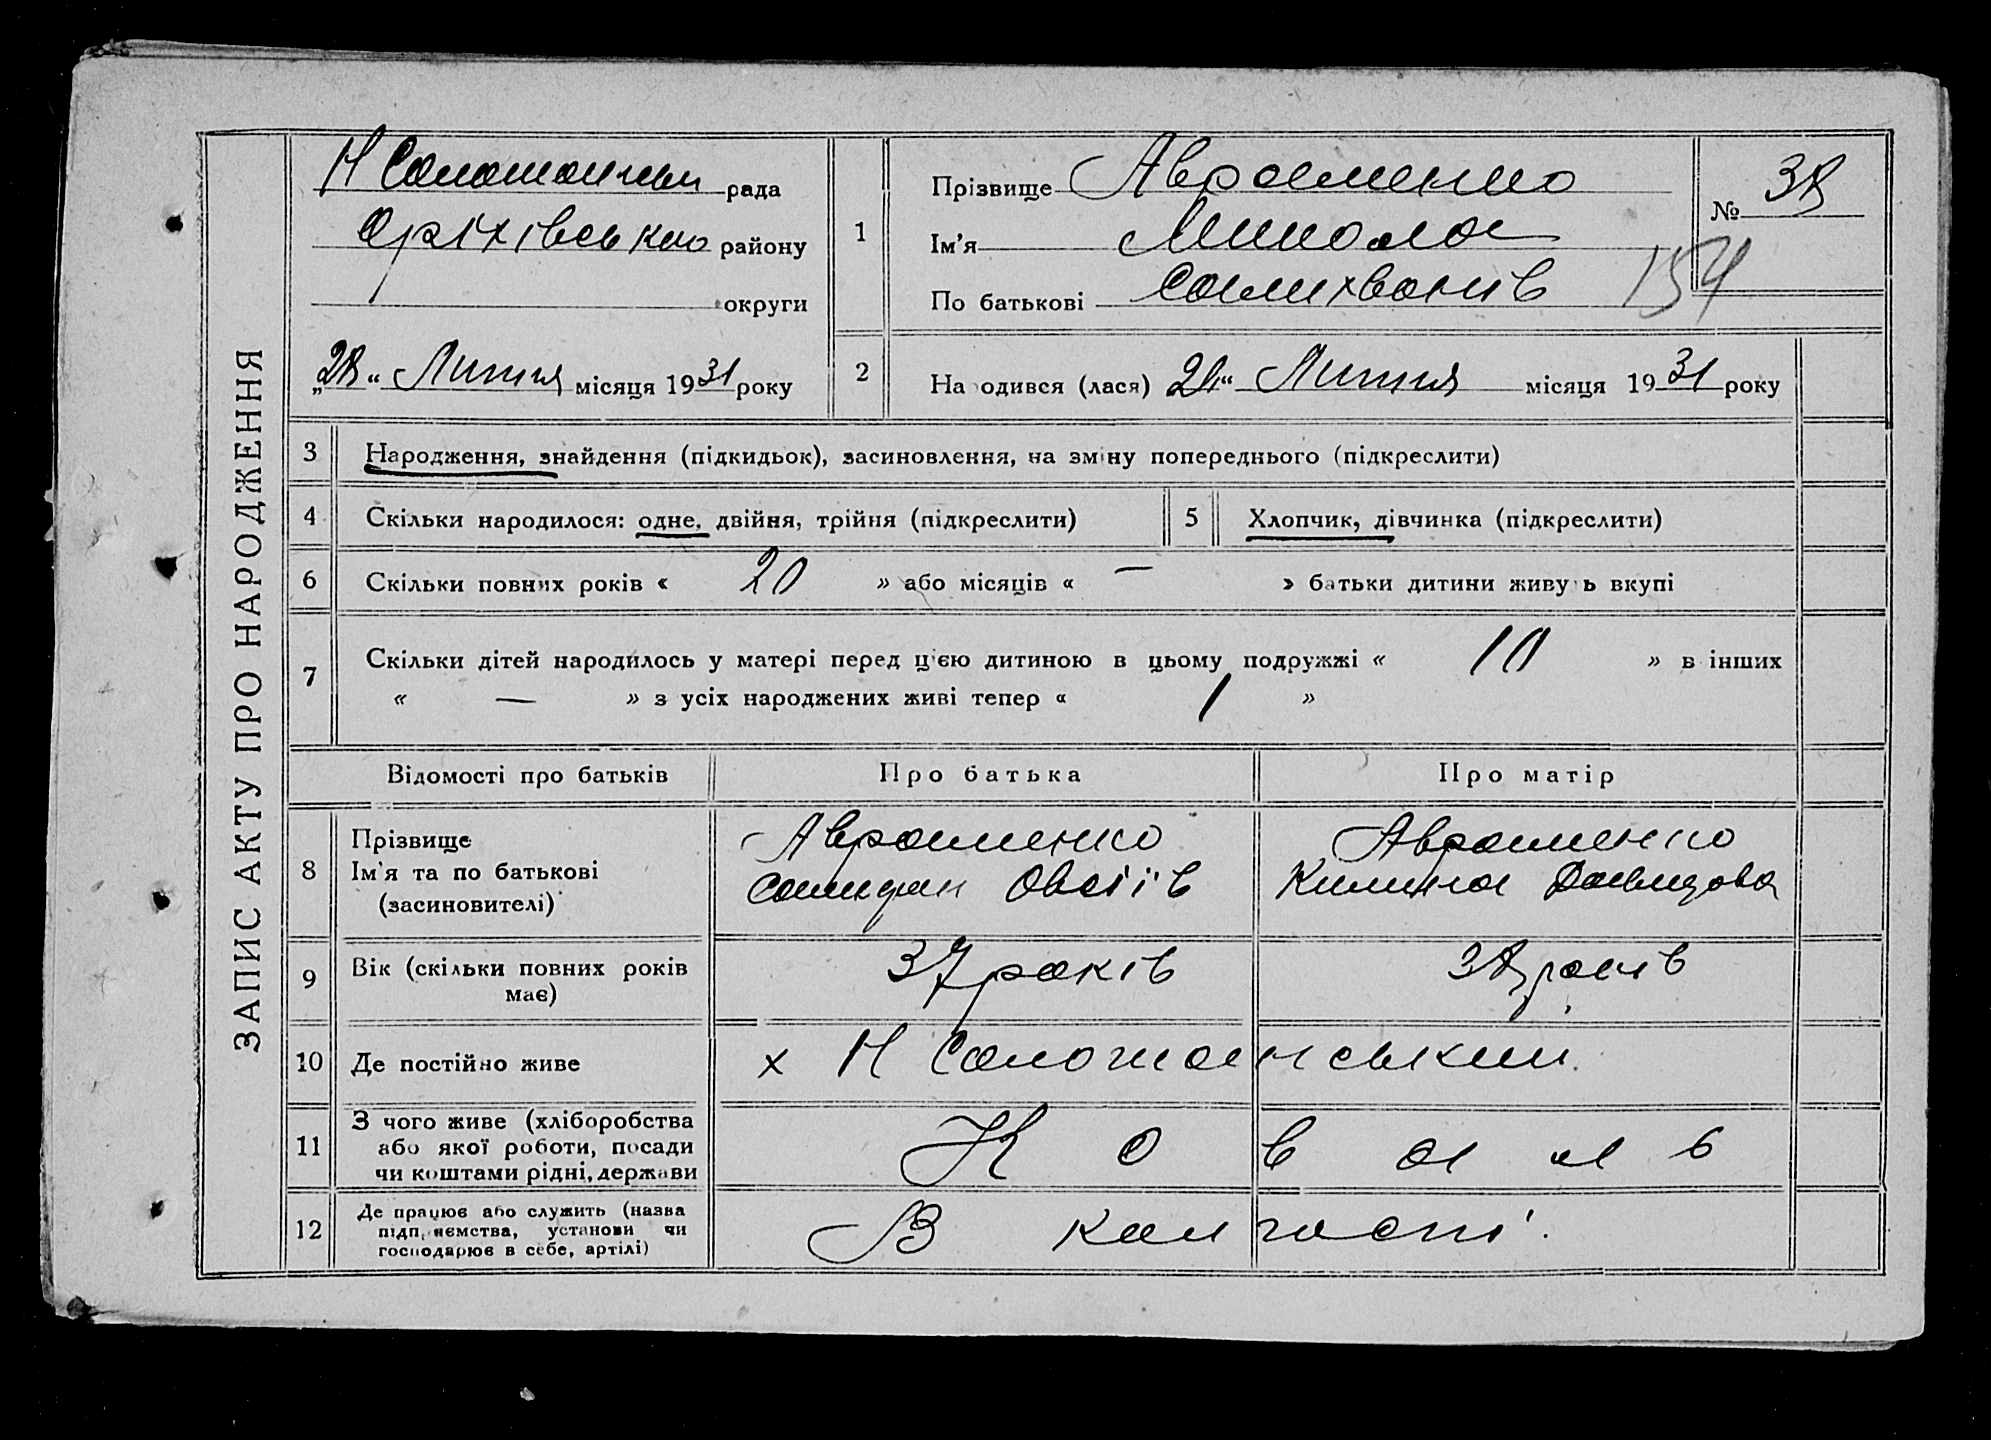 ЗАПИС АКТУ ПРО НАРОДЖЕННЯ
рада
Оріхівського району
округи
„28“ Липня місяця 1931 року
1
Прізвище Авраменко
Ім'я Микола
По батькові Самихванів
№ 38
154
2
На одився (лася) „ “ Липня місяця 1931 року
3 Народження, знайдення (підкидьок), засиновлення, на зміну попереднього (підкреслити)
4 Скільки народилося: одне, двійня, трійня (підкреслити)
5 Хлопчик, дівчинка (підкреслити)
6 Скільки повних років « 20 » або місяців « — » батьки дитини живуть вкупі
7 Скільки дітей народилось у матері перед цією дитиною в цьому подружжі « 10 » в інших
« — » з усіх народжених живі тепер « 1 »
Відомості про батьків
Про батька
Про матір
8 Прізвище
Ім'я та по батькові
(засиновителі)
Авраменко
Овсіїв
Авраменко
Килина Давидова
9 Вік (скільки повних років
має)
37 років
38 років
10 Де постійно живе
х Н Соломанський.
11 З чого живе (хліборобства
або якої роботи, посади
чи коштами рідні, держави
Коваль
12 Де працює або служить (назва
підприємства, установи чи
господарює в себе, артілі)
В колгоспі.